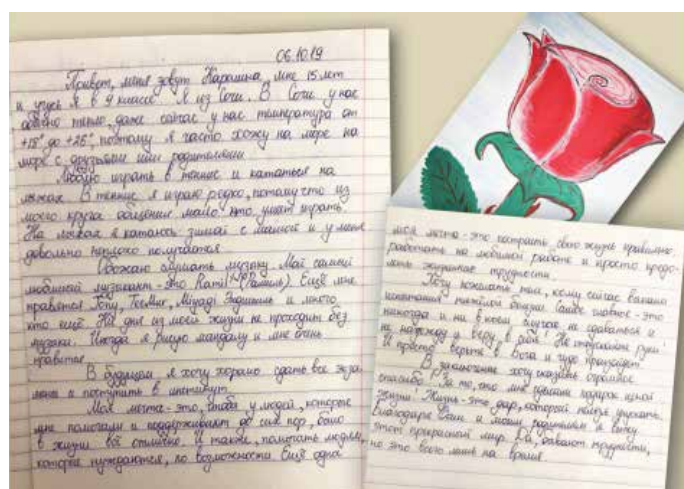 06.10.19
Привет, меня зовут Каролина, мне 15 лет
и учусь я в 9 классе. Я из Сочи. В Сочи у нас
обычно тепло, даже сейчас у нас температура от
+18° до +26°, поэтому я часто хожу на море на
море с друзьями или родителями.
Люблю играть в теннис и кататься на
лыжах. В теннис я играю редко, потому что из
моего круга общения мало кто умеет играть.
На лыжах я катаюсь зимой с мамой и у меня
довольно неплохо получается.
Обожаю слушать музыку. Мой самый
любимый музыкант - это Ramil' (Рамиль). Ещё мне
нравятся Jony, Miyagi Эндшпиль и много
кто ещё. Ни дня из моей жизни не проходит без
музыки. Иногда я рисую мандалу и мне очень
нравится.
В будущем я хочу хорошо сдать все экза-
мены и поступить в институт.
Моя мечта - это, чтобы у людей, которые
мне помогали и поддерживают до сих пор, было
в жизни всё отлично. И также, помогать людям,
которые нуждаются, по возможности. Ещё одна
моя мечта - это построить свою жизнь правильно,
работать на любимой работе и просто
жизненные трудности.
Хочу пожелать тем, кому сейчас выпало
испытание тяжёлой болезни. Самое главное - это
никогда и ни в коем случае не сдаваться и
не надежду и веру в себя! Не опускать руки!
И просто верьте в Бога и чудо произойдёт.
В заключение хочу сказать огромное
спасибо! За то, что мне сделали подарок ценой
жизни! Жизнь - это дар, который нельзя упускать.
Благодаря Вам и моим родителям я вижу
этот прекрасный мир. Да, бывают трудности,
но это всего лишь на время.